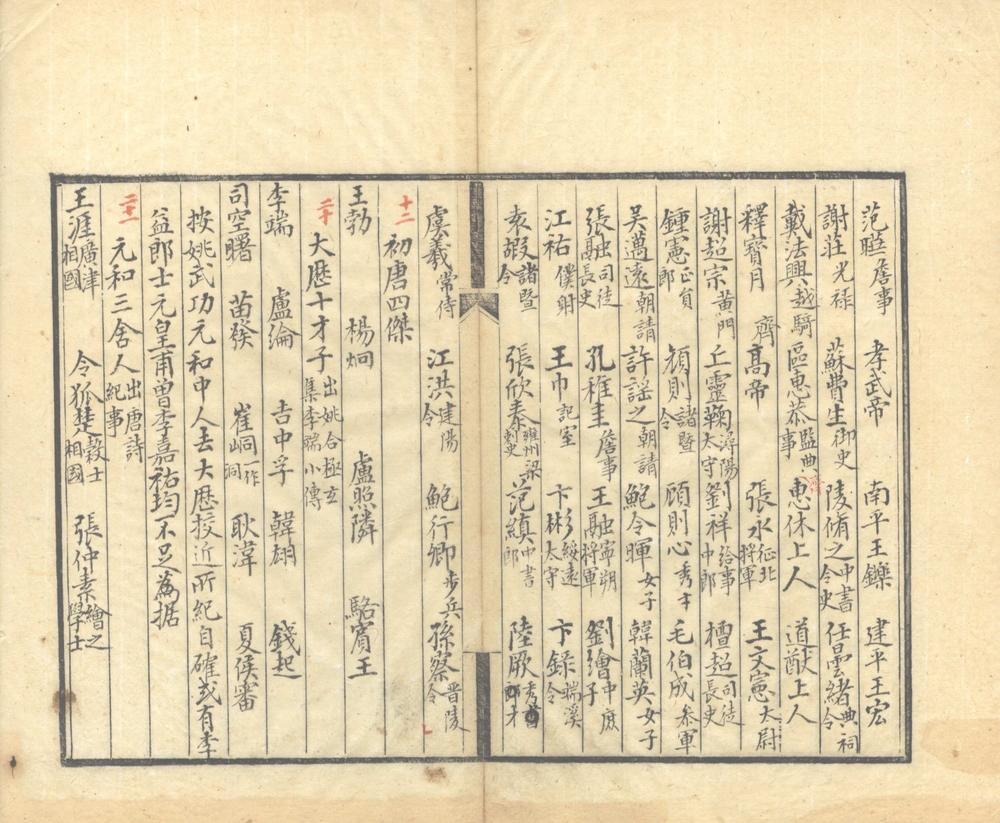 范曄詹事　孝武帝　南平王鑠　建平王宏
謝莊光禄　蘇費生御史　陵脩之中書令史　任曇緒典祠令
戴法興越騎　區惠恭監典事　惠休上人　道猷上人
釋寳月　齊髙帝　張永征北将軍　王文憲太尉
謝超宗黄門　丘靈鞠潯陽太守　劉祥給事中郎　檀超司徒長史
鍾憲正員郎　顔則諸暨令　顧則心秀才　毛伯成参軍
吴邁遠朝請　許謡之朝請　鮑令暉女子　韓蘭英女子
張融司徒長史　孔稚圭詹事　王融寧朔将軍　劉繪中庶子
江祐僕射　王巾記室　卞彬綏遠太守　卞錄端溪令
袁嘏諸暨令　張欣泰雍州梁刺史　范縝中書郎　陸厥秀才
虞羲常侍　江洪建陽令　鮑行卿步兵　孫察晋陵令
十二
初唐四傑
王勃　楊炯　盧照隣　駱賓王
二十
大歴十才子出姚合極玄集李端小傳
李端　盧綸　吉中孚　韓翃　錢起
司空曙　苗發　崔峒一作洞　耿湋　夏侯審
按姚武功元和中人去大歴挍近所紀自確或有李
益郎士元皇甫曽李嘉祐均不足為据
二十一
元和三舍人出唐詩紀事
王涯廣津相國　令狐楚殻士相國　張仲素繪之學士